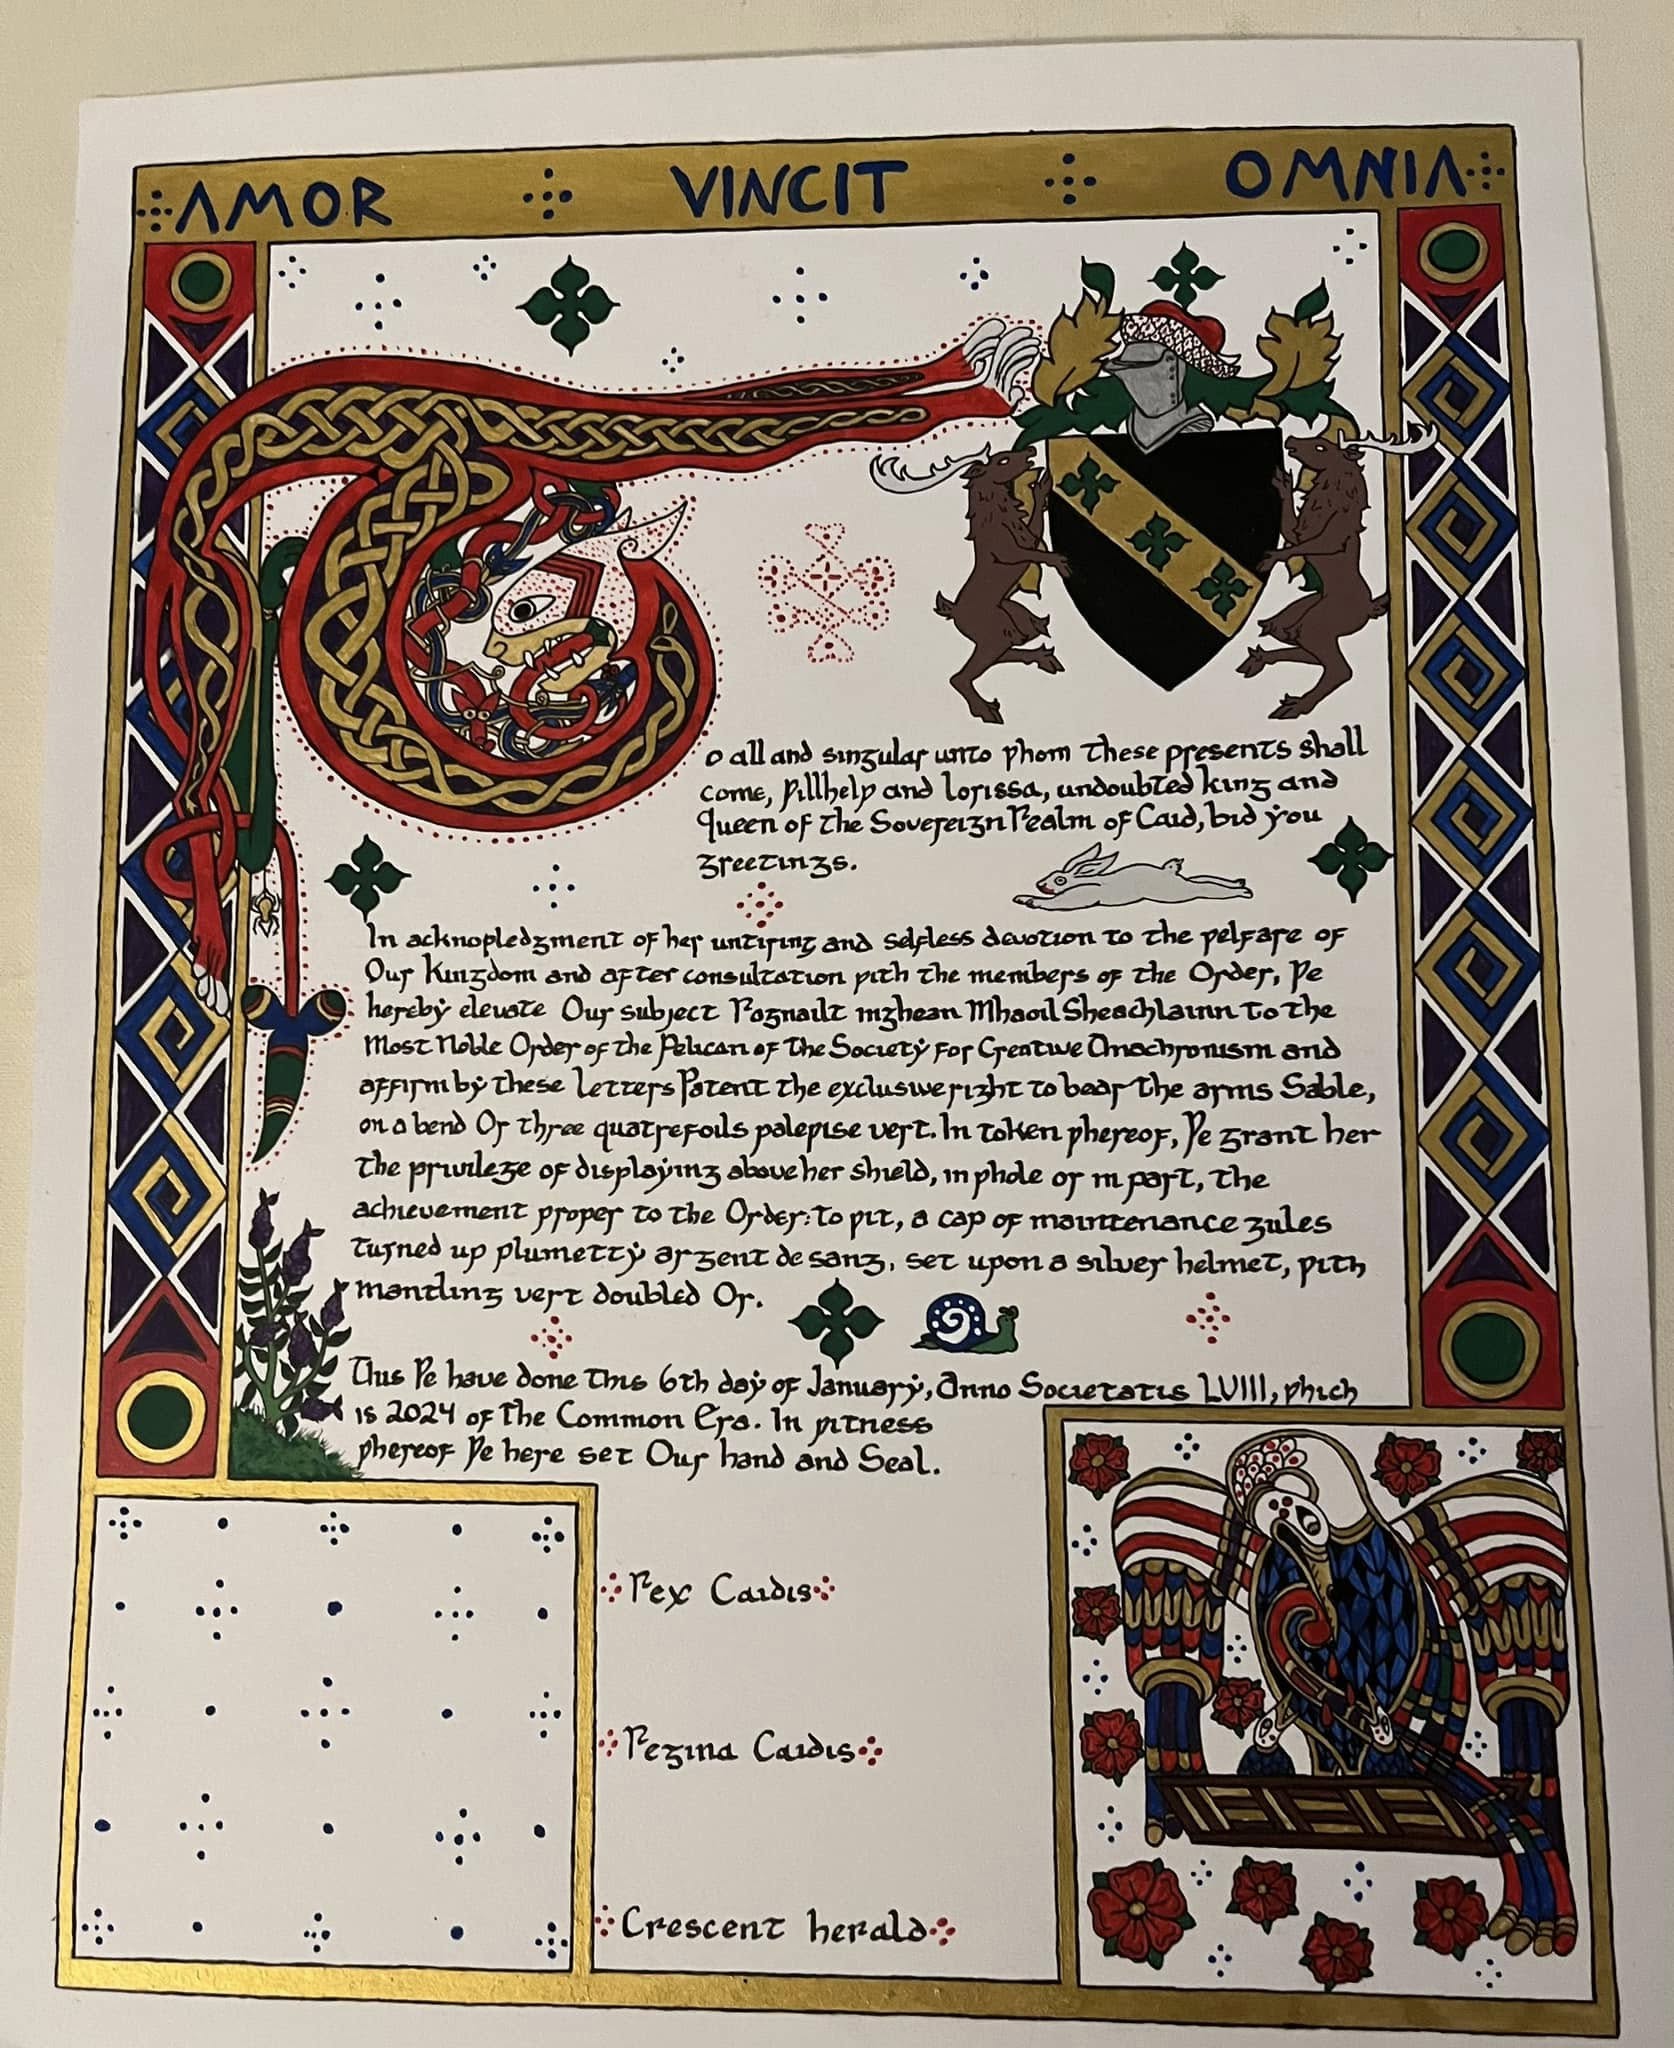 AMOR VINCIT OMNIA
To all and singular unto ƿhom these presents shall
come, and Lorissa, undoubted King and
Queen of the Sovereign Realm of Caid, bid you
greetings.
In acknoƿledgment of her untiring and selfless devotion to the ƿelfare of
Our Kingdom and after consultation ƿith the members of the Order, Ƿe
hereby elevate Our subject Rognailt inghean Mhaoil Sheachlainn to the
Most Noble Order of the Pelican of the Society for Creative Anachronism and
affirm by these Letters Patent the exclusive right to bear the arms Sable,
on a bend Or three quatrefoils paleƿise vert. In token ƿhereof, Ƿe grant her
the privilege of displaying above her shield, in ƿhole or in part, the
achievement proper to the Order: to ƿit, a cap of maintenance gules
turned up plumetty argent de sang, set upon a silver helmet, ƿith
mantling vert doubled Or.
Thus Ƿe have done this 6th day of January, Anno Societatis LVIII, ƿhich
is 2024 of the Common Era. In ƿitness
ƿhereof Ƿe here set Our hand and Seal.
Rex Caidis
Regina Caidis
Crescent Herald